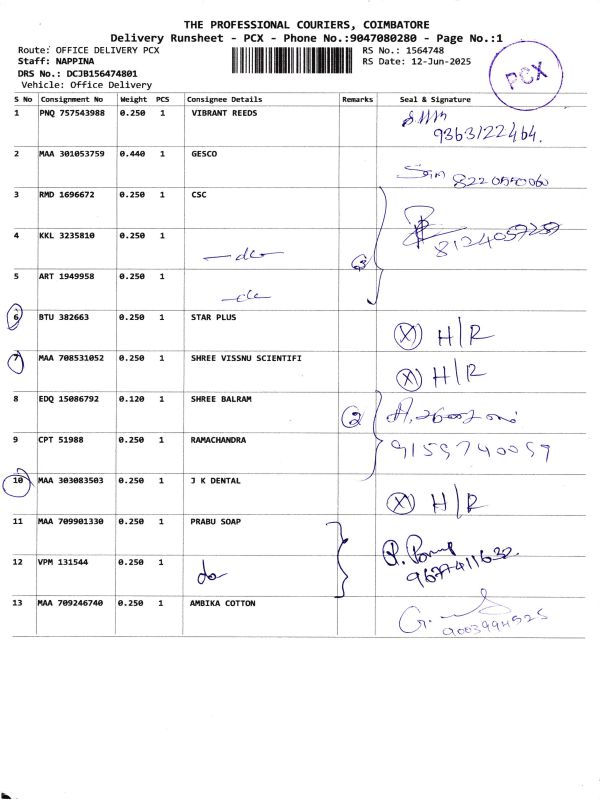 THE PROFESSIONAL COURIERS, COIMBATORE
Delivery Runsheet - PCX - Phone No.:9047080280 - Page No.:1
Route: OFFICE DELIVERY PCX RS No.: 1564748
Staff: NAPPINA RS Date: 12-Jun-2025
DRS No.: DCJB156474801
Vehicle: Office Delivery
PCX
S No Consignment No Weight PCS Consignee Details Remarks Seal & Signature
1 PNQ 757543988 0.250 1 VIBRANT REEDS
9363122464.
2 MAA 301053759 0.440 1 GESCO
3 RMD 1696672 0.250 1 CSC
4 KKL 3235810 0.250 1
-do-
3
5 ART 1949958 0.250 1
-do-
6 BTU 382663 0.250 1 STAR PLUS
(X) H/R
7 MAA 708531052 0.250 1 SHREE VISSNU SCIENTIFI
(X) H/R
8 EDQ 15086792 0.120 1 SHREE BALRAM
2
9 CPT 51988 0.250 1 RAMACHANDRA
9159740059
10 MAA 303083503 0.250 1 J K DENTAL
(X) H/R
11 MAA 709901330 0.250 1 PRABU SOAP
12 VPM 131544 0.250 1
do
9677411632
13 MAA 709246740 0.250 1 AMBIKA COTTON
9003994525